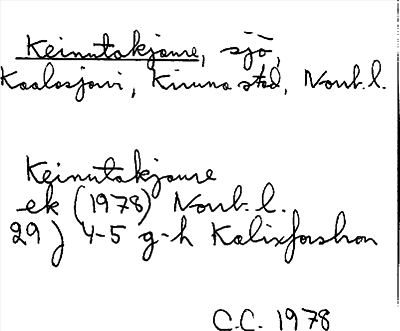 Keinutakjaure, sjö,
Kaalasjärvi, Kiruna stad, Norrb. l.
Keinutakjaure
ek (1978) Norrb. l.
29 J 4-5 g-h Kalixforsbron
C.C. 1978